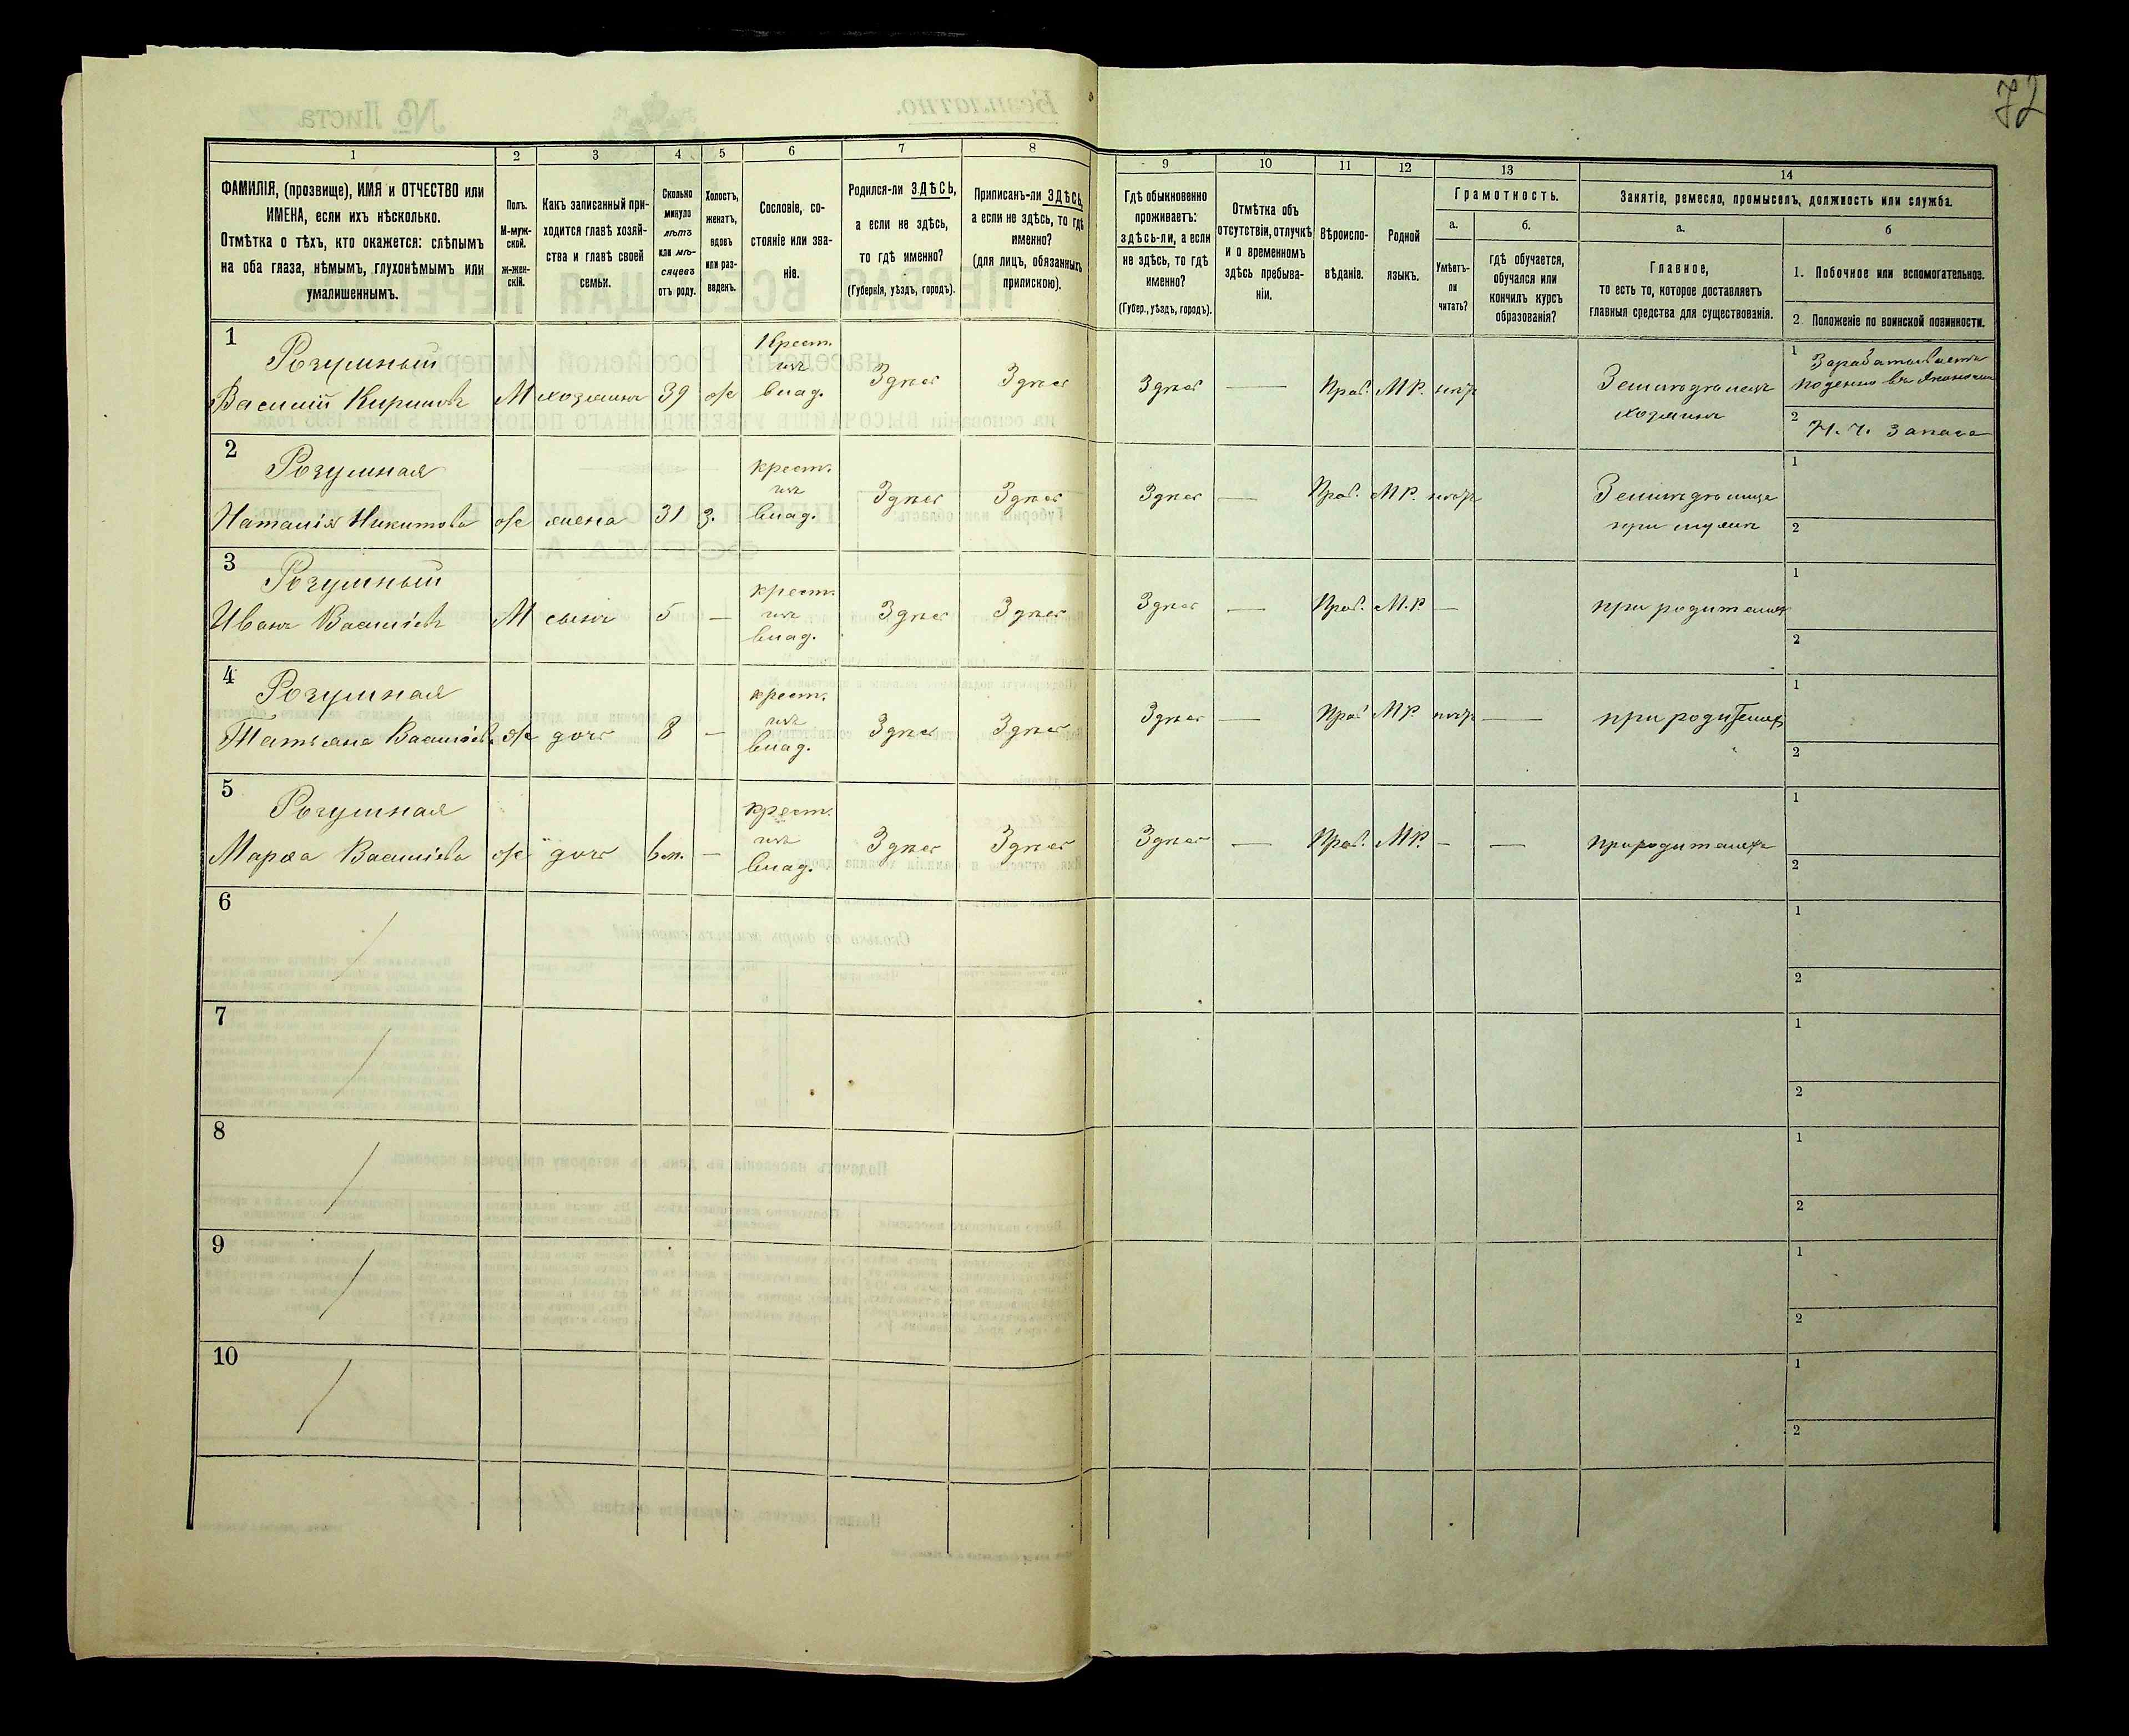 72
1 2 3 4 5 6 7 8 9 10 11 12 13 14
ФАМИЛІЯ, (прозвище), ИМЯ и ОТЧЕСТВО или
ИМЕНА, если ихъ нѣсколько.
Отмѣтка о тѣхъ, кто окажется: слѣпымъ
на оба глаза, нѣмымъ, глухонѣмымъ или
умалишеннымъ.
Полъ.
М-муж-
ской.
ж-жен-
скій.
Какъ записанный при-
ходится главѣ хозяй-
ства и главѣ своей
семьи.
Сколько
минуло
лѣтъ
или мѣ-
сяцевъ
отъ роду.
Холостъ,
женатъ,
вдовъ
или раз-
веденъ.
Сословіе, со-
стояніе или зва-
ніе.
Родился-ли ЗДѢСЬ,
а если не здѣсь,
то гдѣ именно?
(Губернія, уѣздъ, городъ).
Приписанъ-ли ЗДѢСЬ,
а если не здѣсь, то гдѣ
именно?
(для лицъ, обязанныхъ
припискою).
Гдѣ обыкновенно
проживаетъ:
здѣсь-ли, а если
не здѣсь, то гдѣ
именно?
(Губер., уѣздъ, городъ).
Отмѣтка объ
отсутствіи, отлучкѣ
и о временномъ
здѣсь пребыва-
ніи.
Вѣроиспо-
вѣданіе.
Родной
языкъ.
Грамотность.
а.
Умѣетъ-
ли
читать?
б.
гдѣ обучается,
обучался или
кончилъ курсъ
образованія?
Занятіе, ремесло, промыселъ, должность или служба.
а.
Главное,
то есть то, которое доставляетъ
главныя средства для существованія.
б
1. Побочное или вспомогательное.
2. Положеніе по воинской повинности.
1
Розумный
Василій Кириловъ М хозяинъ 39 ж
Крест.
изъ
влад.
Здѣсь Здѣсь Здѣсь — Прав. М Р. нѣтъ
Земледѣлецъ
хозяинъ
1 Зарабатываетъ
поденно въ экономіи
2 Н. ч. запаса
2
Розумная
Наталія Никитова ж жена 31 з.
крест.
изъ
влад.
Здѣсь Здѣсь Здѣсь — Прав. М Р. нѣтъ
Земледѣлица
при мужѣ
1
2
3
Розумный
Иванъ Василіевъ М сынъ 5 —
крест.
изъ
влад.
Здѣсь Здѣсь Здѣсь — Прав. М. Р. —
при родителяхъ
1
2
4
Розумная
Татьяна Василіев. ж дочь 8 —
крест.
изъ
влад.
Здѣсь Здѣсь Здѣсь — Прав. М Р. нѣтъ —
при родителяхъ
1
2
5
Розумная
Марѳа Василіева ж дочь 6 м. —
крест.
изъ
влад.
Здѣсь Здѣсь Здѣсь — Прав. М Р. — —
при родителяхъ
1
2
6
1
2
7
1
2
8
1
2
9
1
2
10
1
2